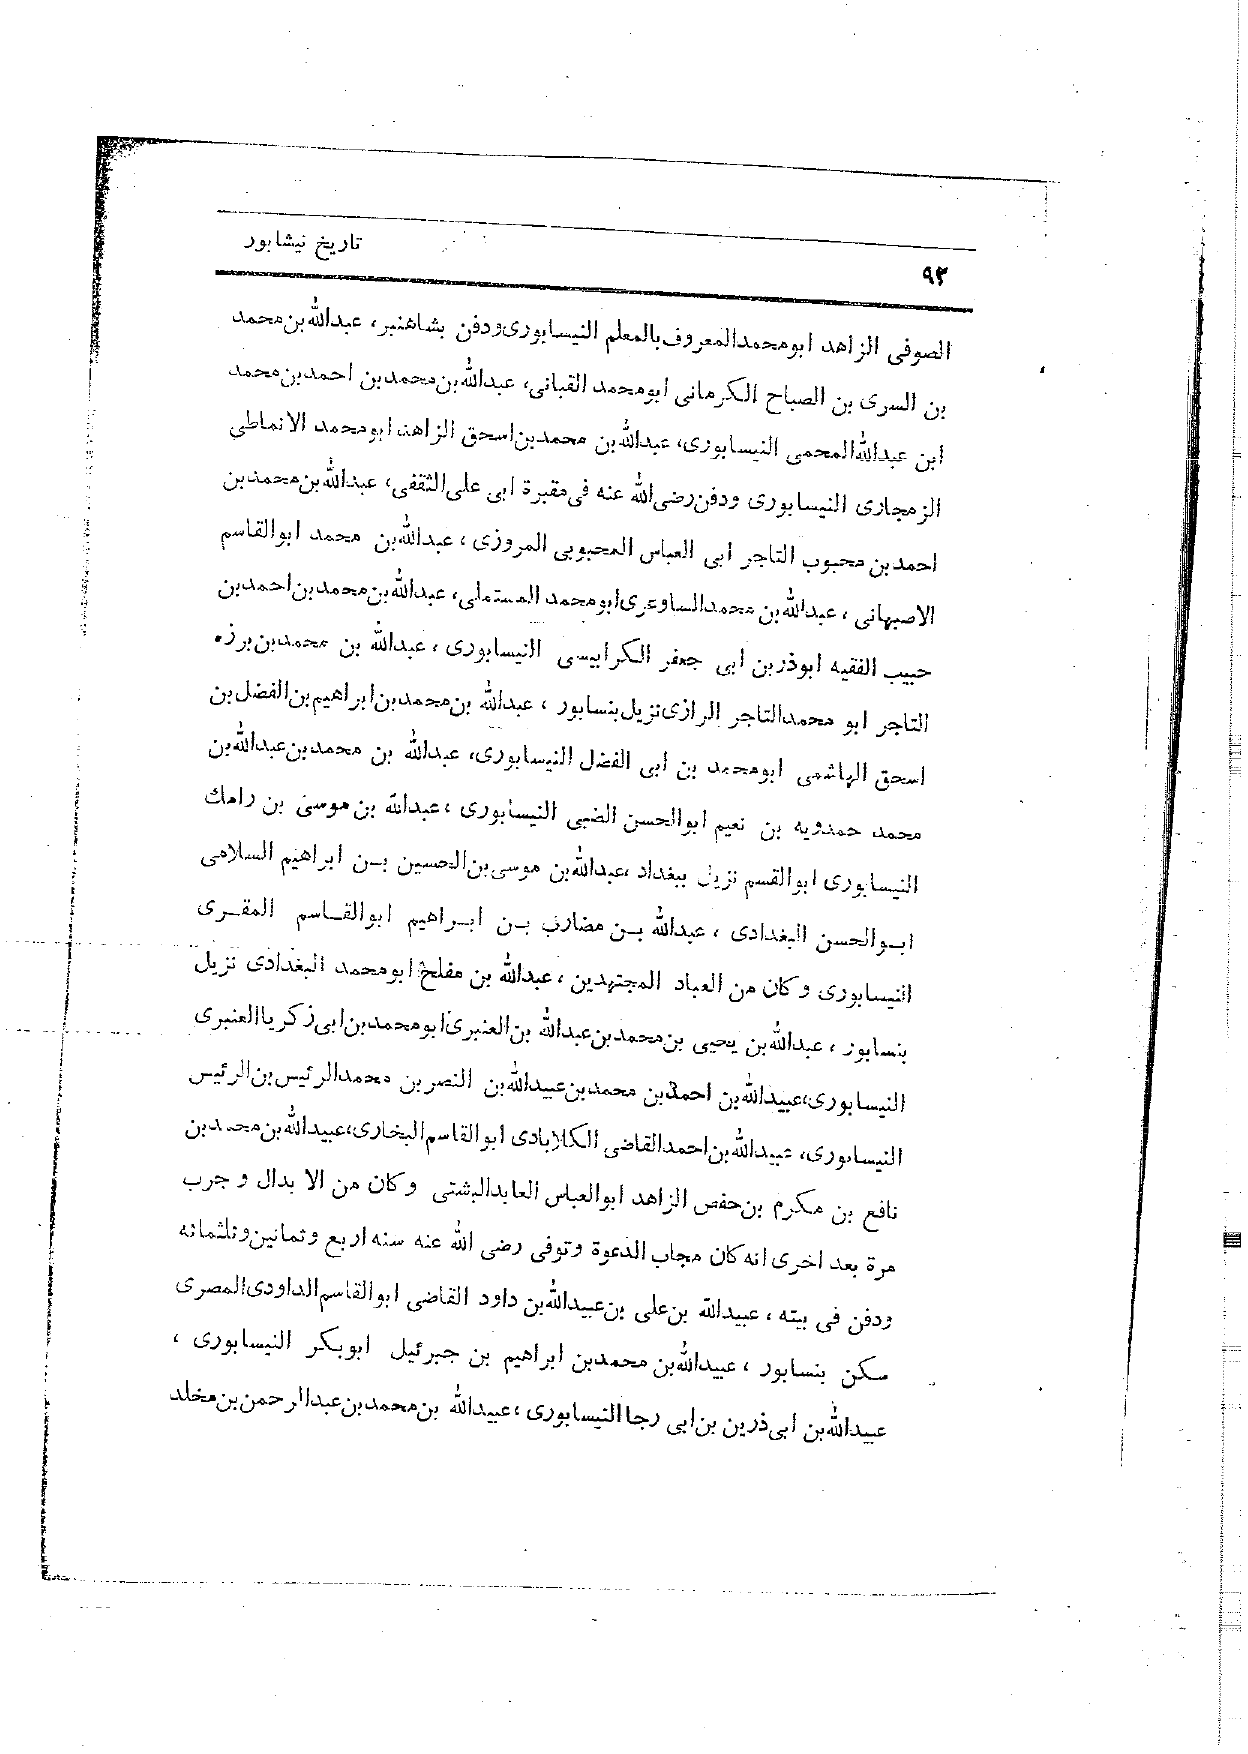 تاریخ نیشابور
۹۳
الصوفی الزاهد ابومحمدالمعروف‌بالمعلم النیسابوری‌ودفن بشاهنبر، عبدالله‌بن‌محمد
بن السری بن الصباح الکرمانی ابومحمد القبانی، عبدالله‌بن‌محمدبن احمدبن‌محمد
ابن عبدالله‌المحمی النیسابوری، عبدالله‌بن محمدبن‌اسحق الزاهد ابومحمد الانماطی
الزمجاری النیسابوری ودفن‌رضی‌الله عنه فی‌مقبرة ابی علی‌الثقفی، عبدالله‌بن‌محمدبن
احمدبن محبوب التاجر ابی العباس المحبوبی المروزی، عبدالله‌بن محمد ابوالقاسم
الاصبهانی، عبدالله‌بن محمدالساوعری‌ابومحمد المستملی، عبدالله‌بن‌محمدبن‌احمدبن
حبیب الفقیه ابوذربن ابی جعفر الکرابیسی النیسابوری، عبدالله بن محمدبن‌برزه
التاجر ابو محمدالتاجر الرازی‌نزیل‌بنسابور، عبدالله بن‌محمدبن‌ابراهیم‌بن‌الفضل‌بن
اسحق الهاشمی ابومحمد بن ابی الفضل النیسابوری، عبدالله بن محمدبن‌عبدالله‌بن
محمد حمدویه بن نعیم ابوالحسن الضبی النیسابوری، عبدالله بن‌موسی بن رامك
النیسابوری ابوالقسم نزیل ببغداد، عبدالله‌بن موسی‌بن‌الحسین بـن ابراهیم السلامی
ابـوالحسن البغدادی، عبدالله بـن مضارب بـن ابـراهیم ابوالقـاسم المقـری
النیسابوری وکان من العباد المجتهدین، عبدالله بن مفلح ابومحمد البغدادی نزیل
بنسابور، عبدالله‌بن یحیی بن‌محمدبن‌عبدالله بن‌العنبری‌ابومحمدبن‌ابی‌زکریاالعنبری
النیسابوری،عبیدالله‌بن احمدبن محمدبن‌عبیدالله‌بن النصربن محمدالرئیس‌بن‌الرئیس
النیسابوری، عبیدالله‌بن‌احمدالقاضی الکلابادی ابوالقاسم‌البخاری،عبیدالله‌بن‌محمدبن
نافع بن مکرم بن‌حفص الزاهد ابوالعباس العابدالبشتی وکان من الابدال و جرب
مرة بعد اخری انه‌کان مجاب الدعوة وتوفی رضی الله عنه سنه اربع وثمانین‌وثلثمائه
ودفن فی بیته، عبیدالله بن‌علی بن‌عبیدالله‌بن داود القاضی ابوالقاسم‌الداودی‌المصری
سکن بنسابور، عبیدالله‌بن محمدبن ابراهیم بن جبرئیل ابوبکر النیسابوری،
عبیدالله‌بن ابی‌ذرین بن‌ابی رجاالنیسابوری، عبیدالله بن‌محمدبن‌عبدالرحمن‌بن‌مخلد